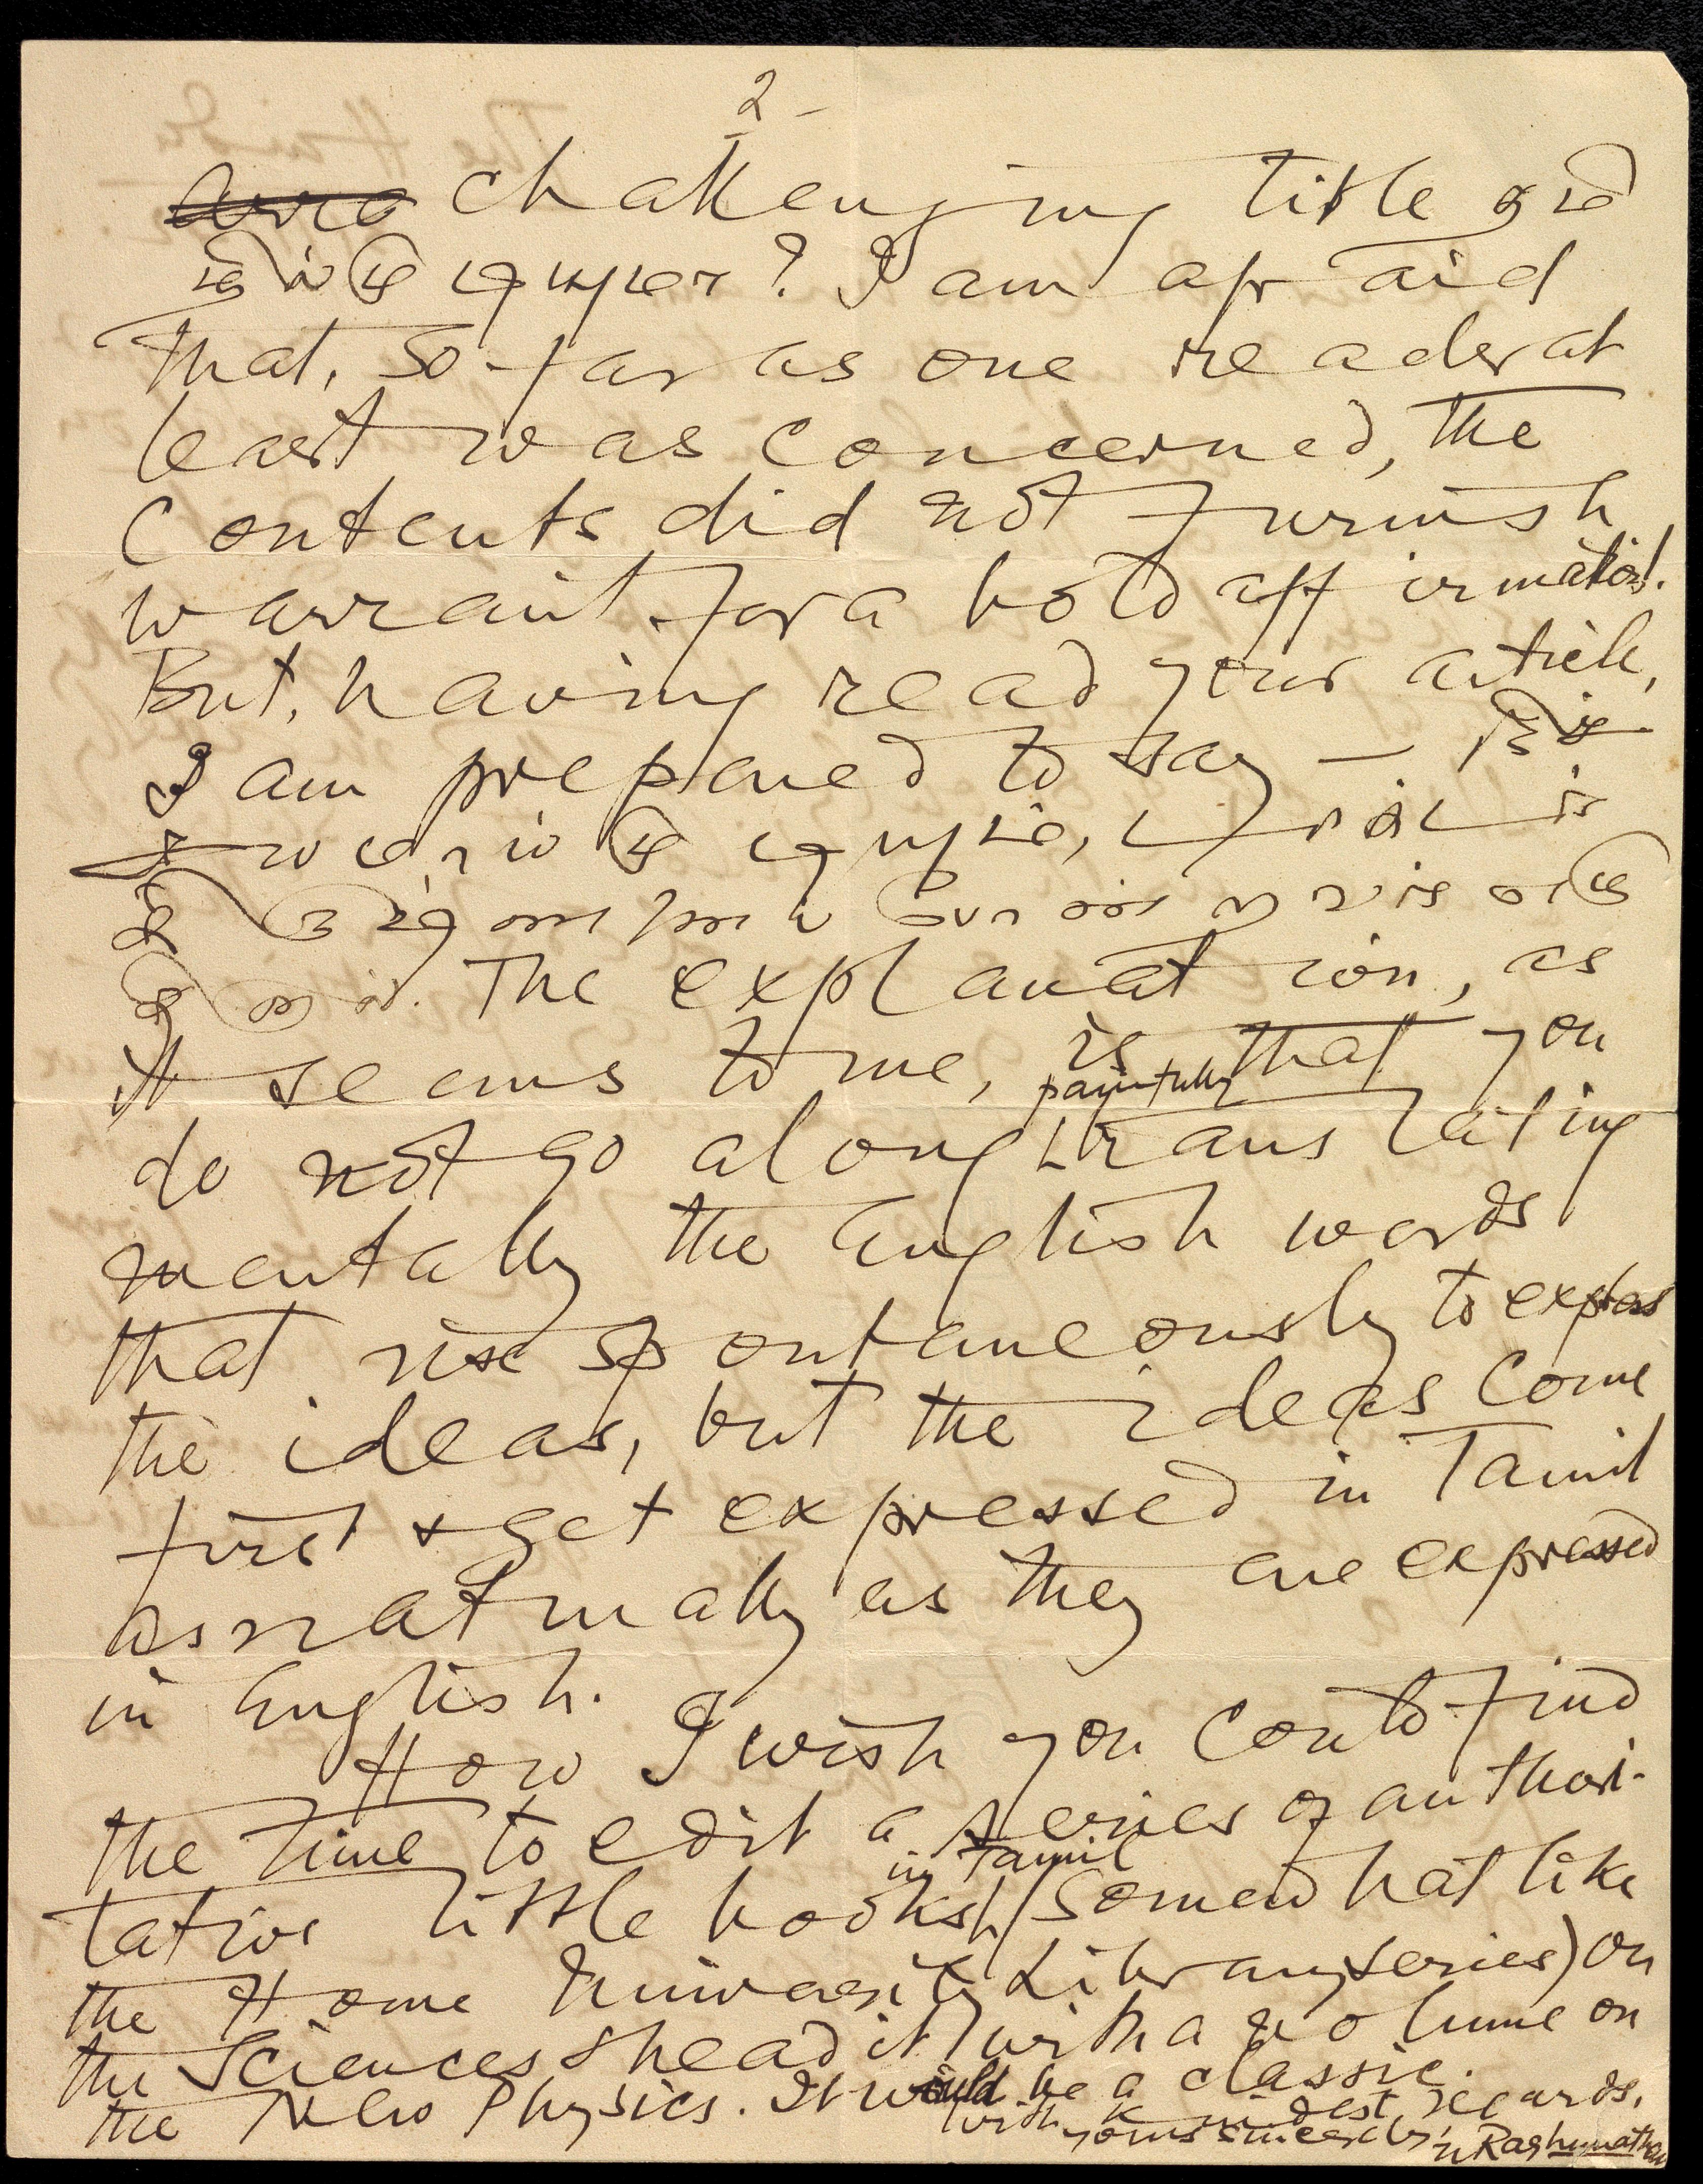 2
challenging title
? I am afraid
that, so far as one reader at
least was concerned, the
contents did not furnish
warrant for a bold affirmation.
But, having read your article,
I am prepared to say —
The explanation, as
it seems to me, is that you
do not go along painfully translating
mentally the English words
that rise spontaneously to express
the ideas, but the ideas come
first & get expressed in Tamil
as naturally as they are expressed
in English.
How I wish you could find
the time to edit a series of authori-
tative little books in Tamil (somewhat like
the Home University Library series) on
the Sciences & head it with a volume on
the New Physics. It would be a classic.
with kindest regards,
yours sincerely,
N Raghunathan